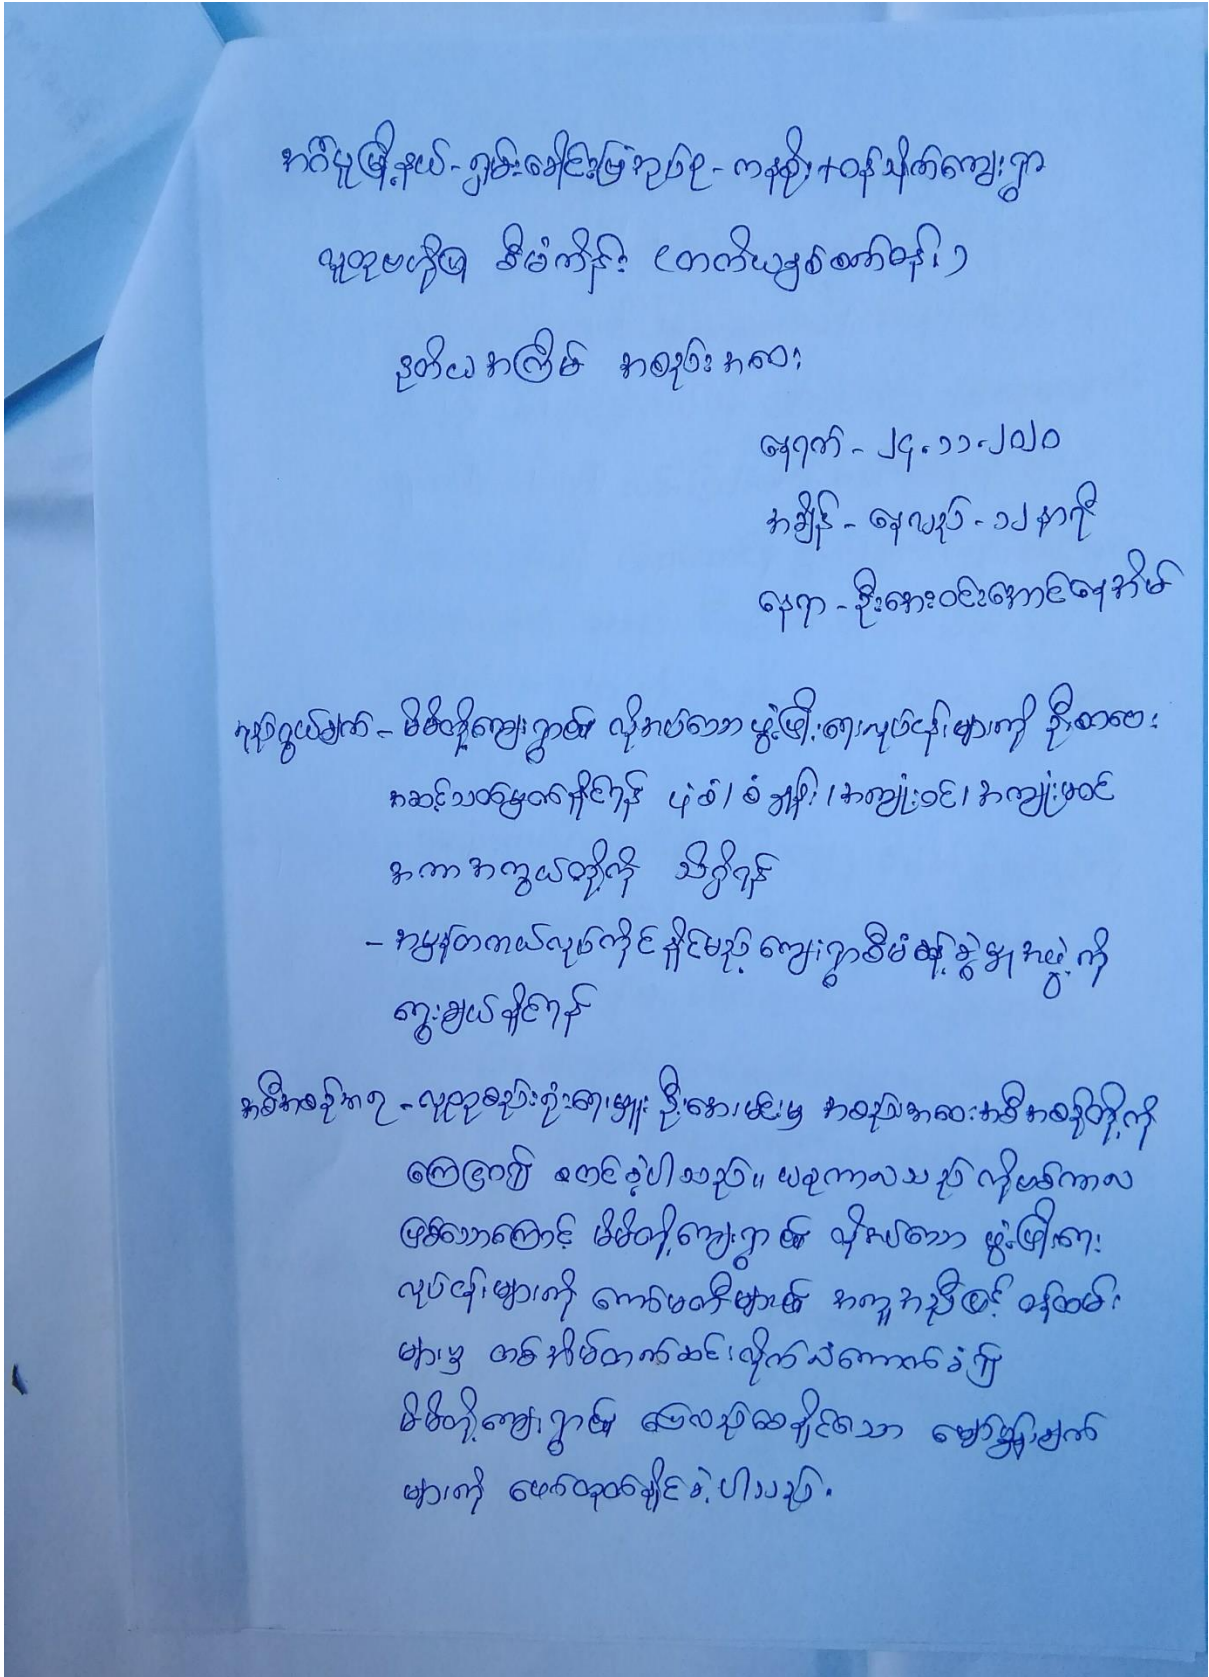 အင်္ဂပူမြို့နယ် - ရှမ်းခေါင်းမြဲအုပ်စု - ကနစိုး + ဝန်သိုက်ကျေးရွာ
လူထုဗဟိုပြု စီမံကိန်း (တတိယနှစ်စက်ဝန်း)
ဒုတိယအကြိမ် အစည်းအဝေး
နေ့ရက် - ၂၄.၁၁.၂၀၂၀
အချိန် - နေ့လည် - ၁၂ နာရီ
နေရာ - ဦးအေးဝင်းအောင်နေအိမ်
ရည်ရွယ်ချက် - မိမိတို့ကျေးရွာ၏ လိုအပ်သော ဖွံ့ဖြိုးရေးလုပ်ငန်းများကို ဦးစားပေး
အဆင့်သတ်မှတ်နိုင်ရန် ပုံစံ၊ စံချိန်၊ အကျုံးဝင်၊ အကျုံးမဝင်
အကာအကွယ်တို့ကို သိရှိရန်
- အမှန်တကယ်လုပ်ကိုင်နိုင်မည့် ကျေးရွာစီမံခန့်ခွဲမှုအဖွဲ့ကို
ရွေးချယ်နိုင်ရန်
အစီအစဉ်အရ - လူထုစည်းရုံးရေးမှူး ဦးအေးမင်းမှ အစည်းအဝေးအစီအစဉ်တို့ကို
ကြေငြာ၍ စတင်ခဲ့ပါသည်။ ယခုကာလသည် ကိုဗစ်ကာလ
ဖြစ်သောကြောင့် မိမိတို့ကျေးရွာ၏ လိုအပ်သော ဖွံ့ဖြိုးရေး
လုပ်ငန်းများကို ကော်မတီများ၏ အကူအညီဖြင့် ဝန်ထမ်း
များမှ တစ်အိမ်တက်ဆင်းလိုက်လံကောက်ခံ၍
မိမိတို့ကျေးရွာ၏ ပြေလည်စေနိုင်သော မျှော်မှန်းချက်
များကို ဖော်ထုတ်နိုင်ခဲ့ပါသည်။